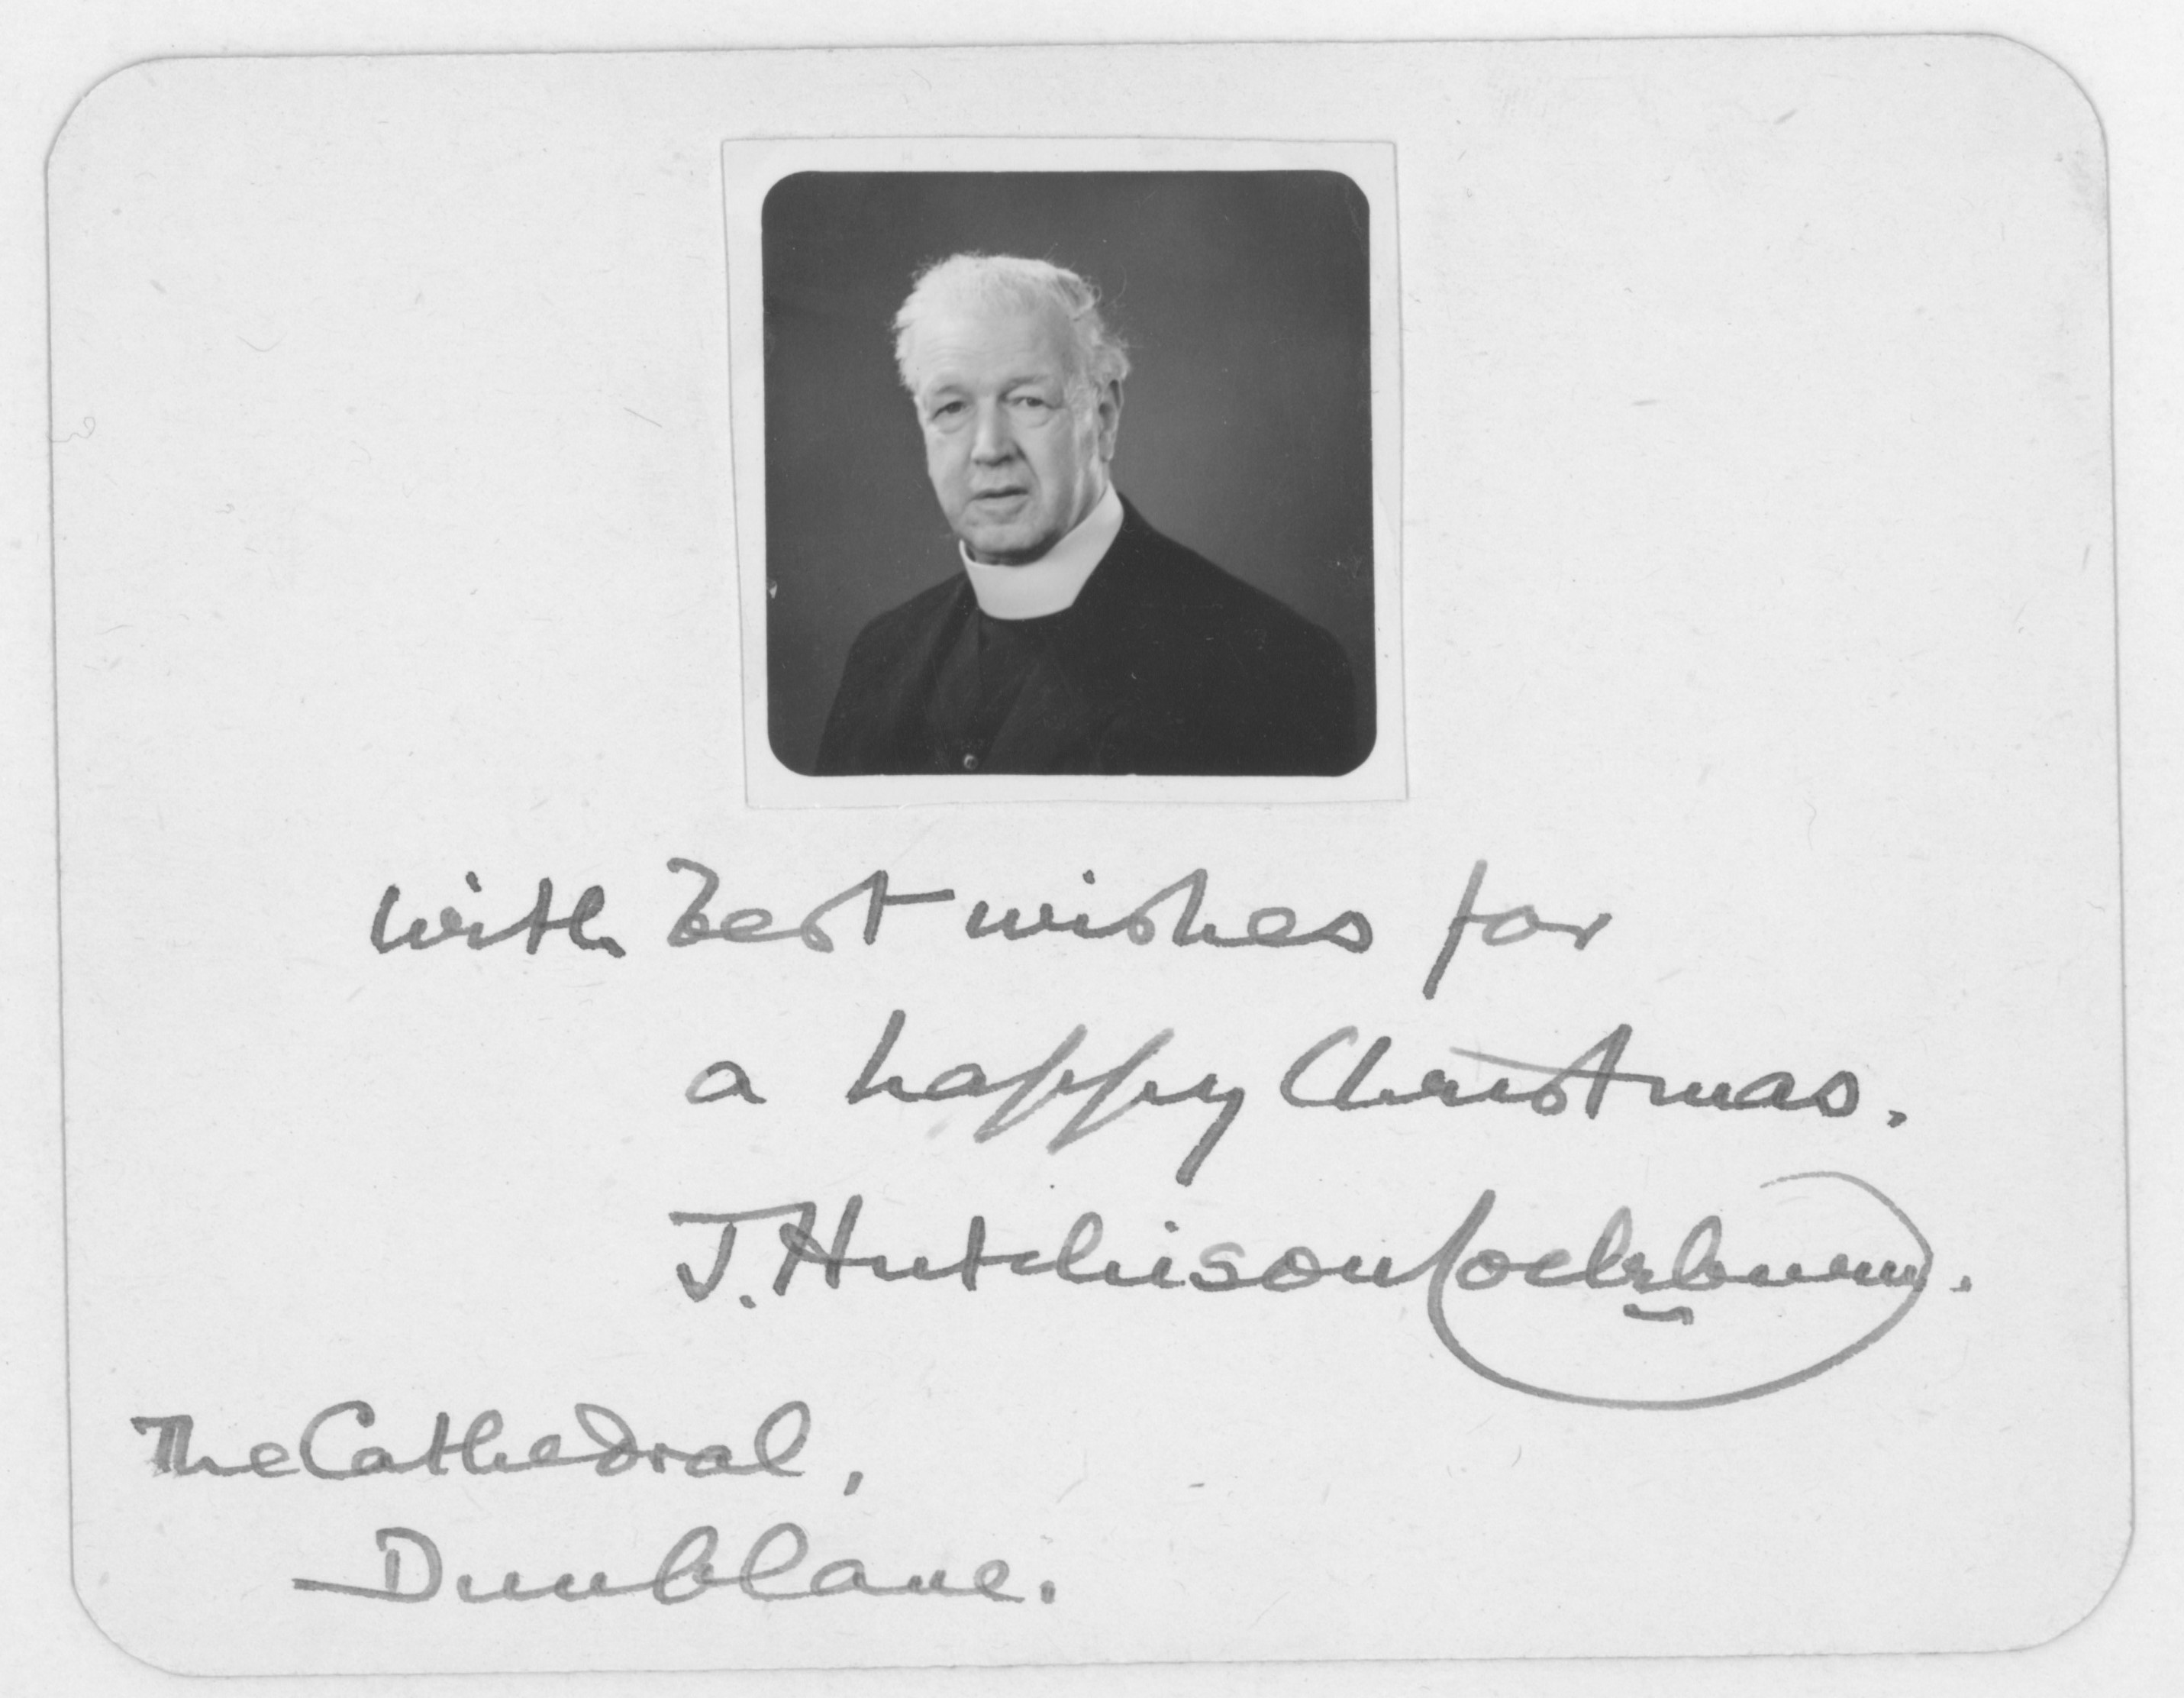 with best wishes for
a happy Christmas.
J. Hutchison Cockburn.
The Cathedral,
Dunblane.